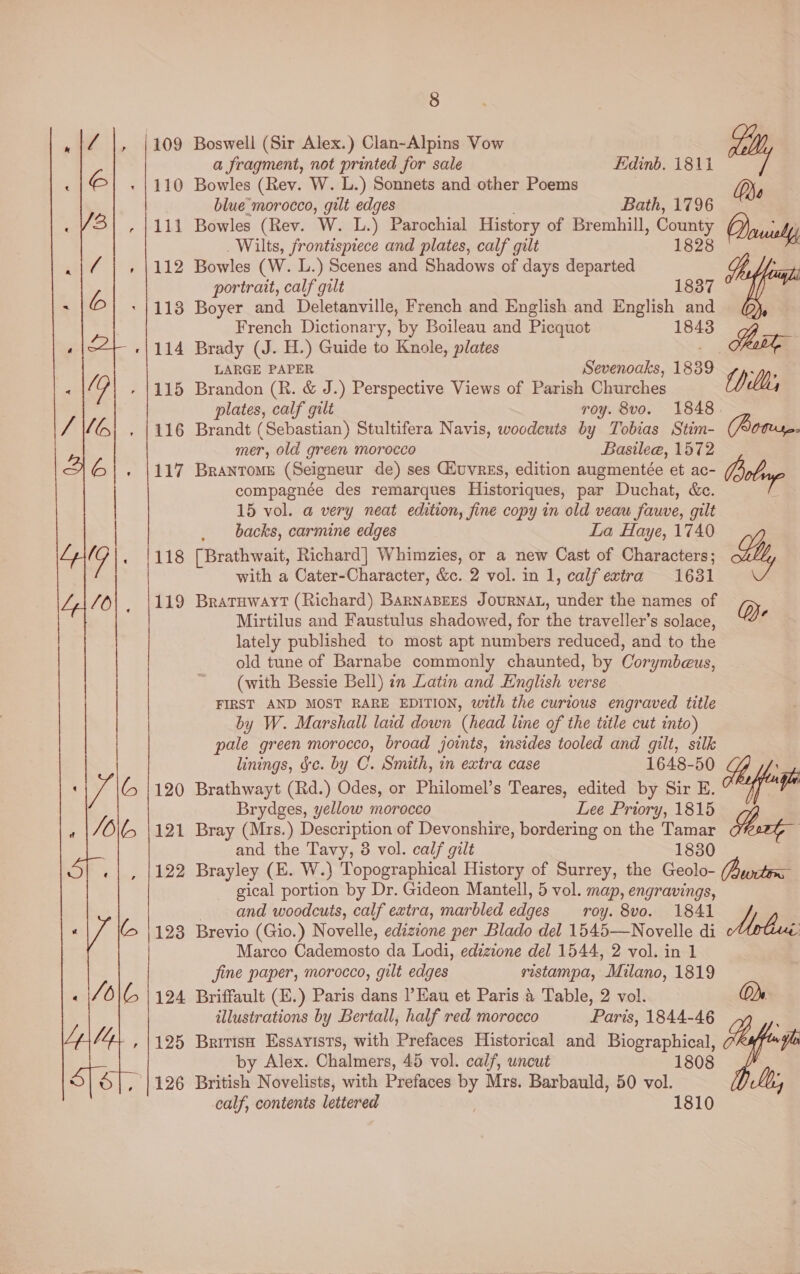 8
109 Boswell (Sir Alex.) Clan-Alpins Vow
a fragment, not printed for sale Edinb. 1811
110 Bowles (Rev. W. L.) Sonnets and other Poems
blue morocco, gilt edges Bath, 1796
111 Bowles (Rev. W. L.) Parochial History of Bremhill, County
Wilts, frontispiece and plates, calf gilt 1828
112 Bowles (W. L.) Scenes and Shadows of days departed
portrait, calf gilt 1837
113 Boyer and Deletanville, French and English and English and
French Dictionary, by Boileau and Picquot 1843
114 Brady (J. H.) Guide to Knole, plates
LARGE PAPER Sevenoaks, 1839
115 Brandon (R. & J.) Perspective Views of Parish Churches
plates, calf gilt roy. 8vo. 1848
116 Brandt (Sebastian) Stultifera Navis, woodcuts by Tobias Stim-
mer, old green morocco Basileæ, 1572
117 BRANTOME (Seigneur de) ses ŒUVRES, edition augmentée et ac-
compagnée des remarques Historiques, par Duchat, &c.
15 vol. a very neat edition, fine copy in old veau fauve, gilt
backs, carmine edges La Haye, 1740
118 [Brathwait, Richard] Whimzies, or a new Cast of Characters;
with a Cater-Character, &c. 2 vol. in 1, calf extra 1631
119 BRATHWAYT (Richard) BARNABEES JOURNAL, under the names of
Mirtilus and Faustulus shadowed, for the traveller's solace,
lately published to most apt numbers reduced, and to the
old tune of Barnabe commonly chaunted, by Corymbœus,
(with Bessie Bell) in Latin and English verse
FIRST AND MOST RARE EDITION, with the curious engraved title
by W. Marshall laid down (head line of the title cut into)
pale green morocco, broad joints, insides tooled and gilt, silk
linings, &c. by C. Smith, in extra case 1648-50
120 Brathwayt (Rd.) Odes, or Philomel's Teares, edited by Sir E.
Brydges, yellow morocco Lee Priory, 1815
121 Bray (Mrs.) Description of Devonshire, bordering on the Tamar
and the Tavy, 3 vol. calf gilt 1830
122 Brayley (E. W.) Topographical History of Surrey, the Geolo-
gical portion by Dr. Gideon Mantell, 5 vol. map, engravings,
and woodcuts, calf extra, marbled edges roy. 8vo. 1841
123 Brevio (Gio.) Novelle, edizione per Blado del 1545—Novelle di
Marco Cademosto da Lodi, edizione del 1544, 2 vol. in 1
fine paper, morocco, gilt edges ristampa, Milano, 1819
124 Briffault (E.) Paris dans l'Eau et Paris à Table, 2 vol.
illustrations by Bertall, half red morocco Paris, 1844-46
125 BRITISH ESSAYISTS, with Prefaces Historical and Biographical,
by Alex. Chalmers, 45 vol. calf, uncut 1808
126 British Novelists, with Prefaces by Mrs. Barbauld, 50 vol.
calf, contents lettered 1810